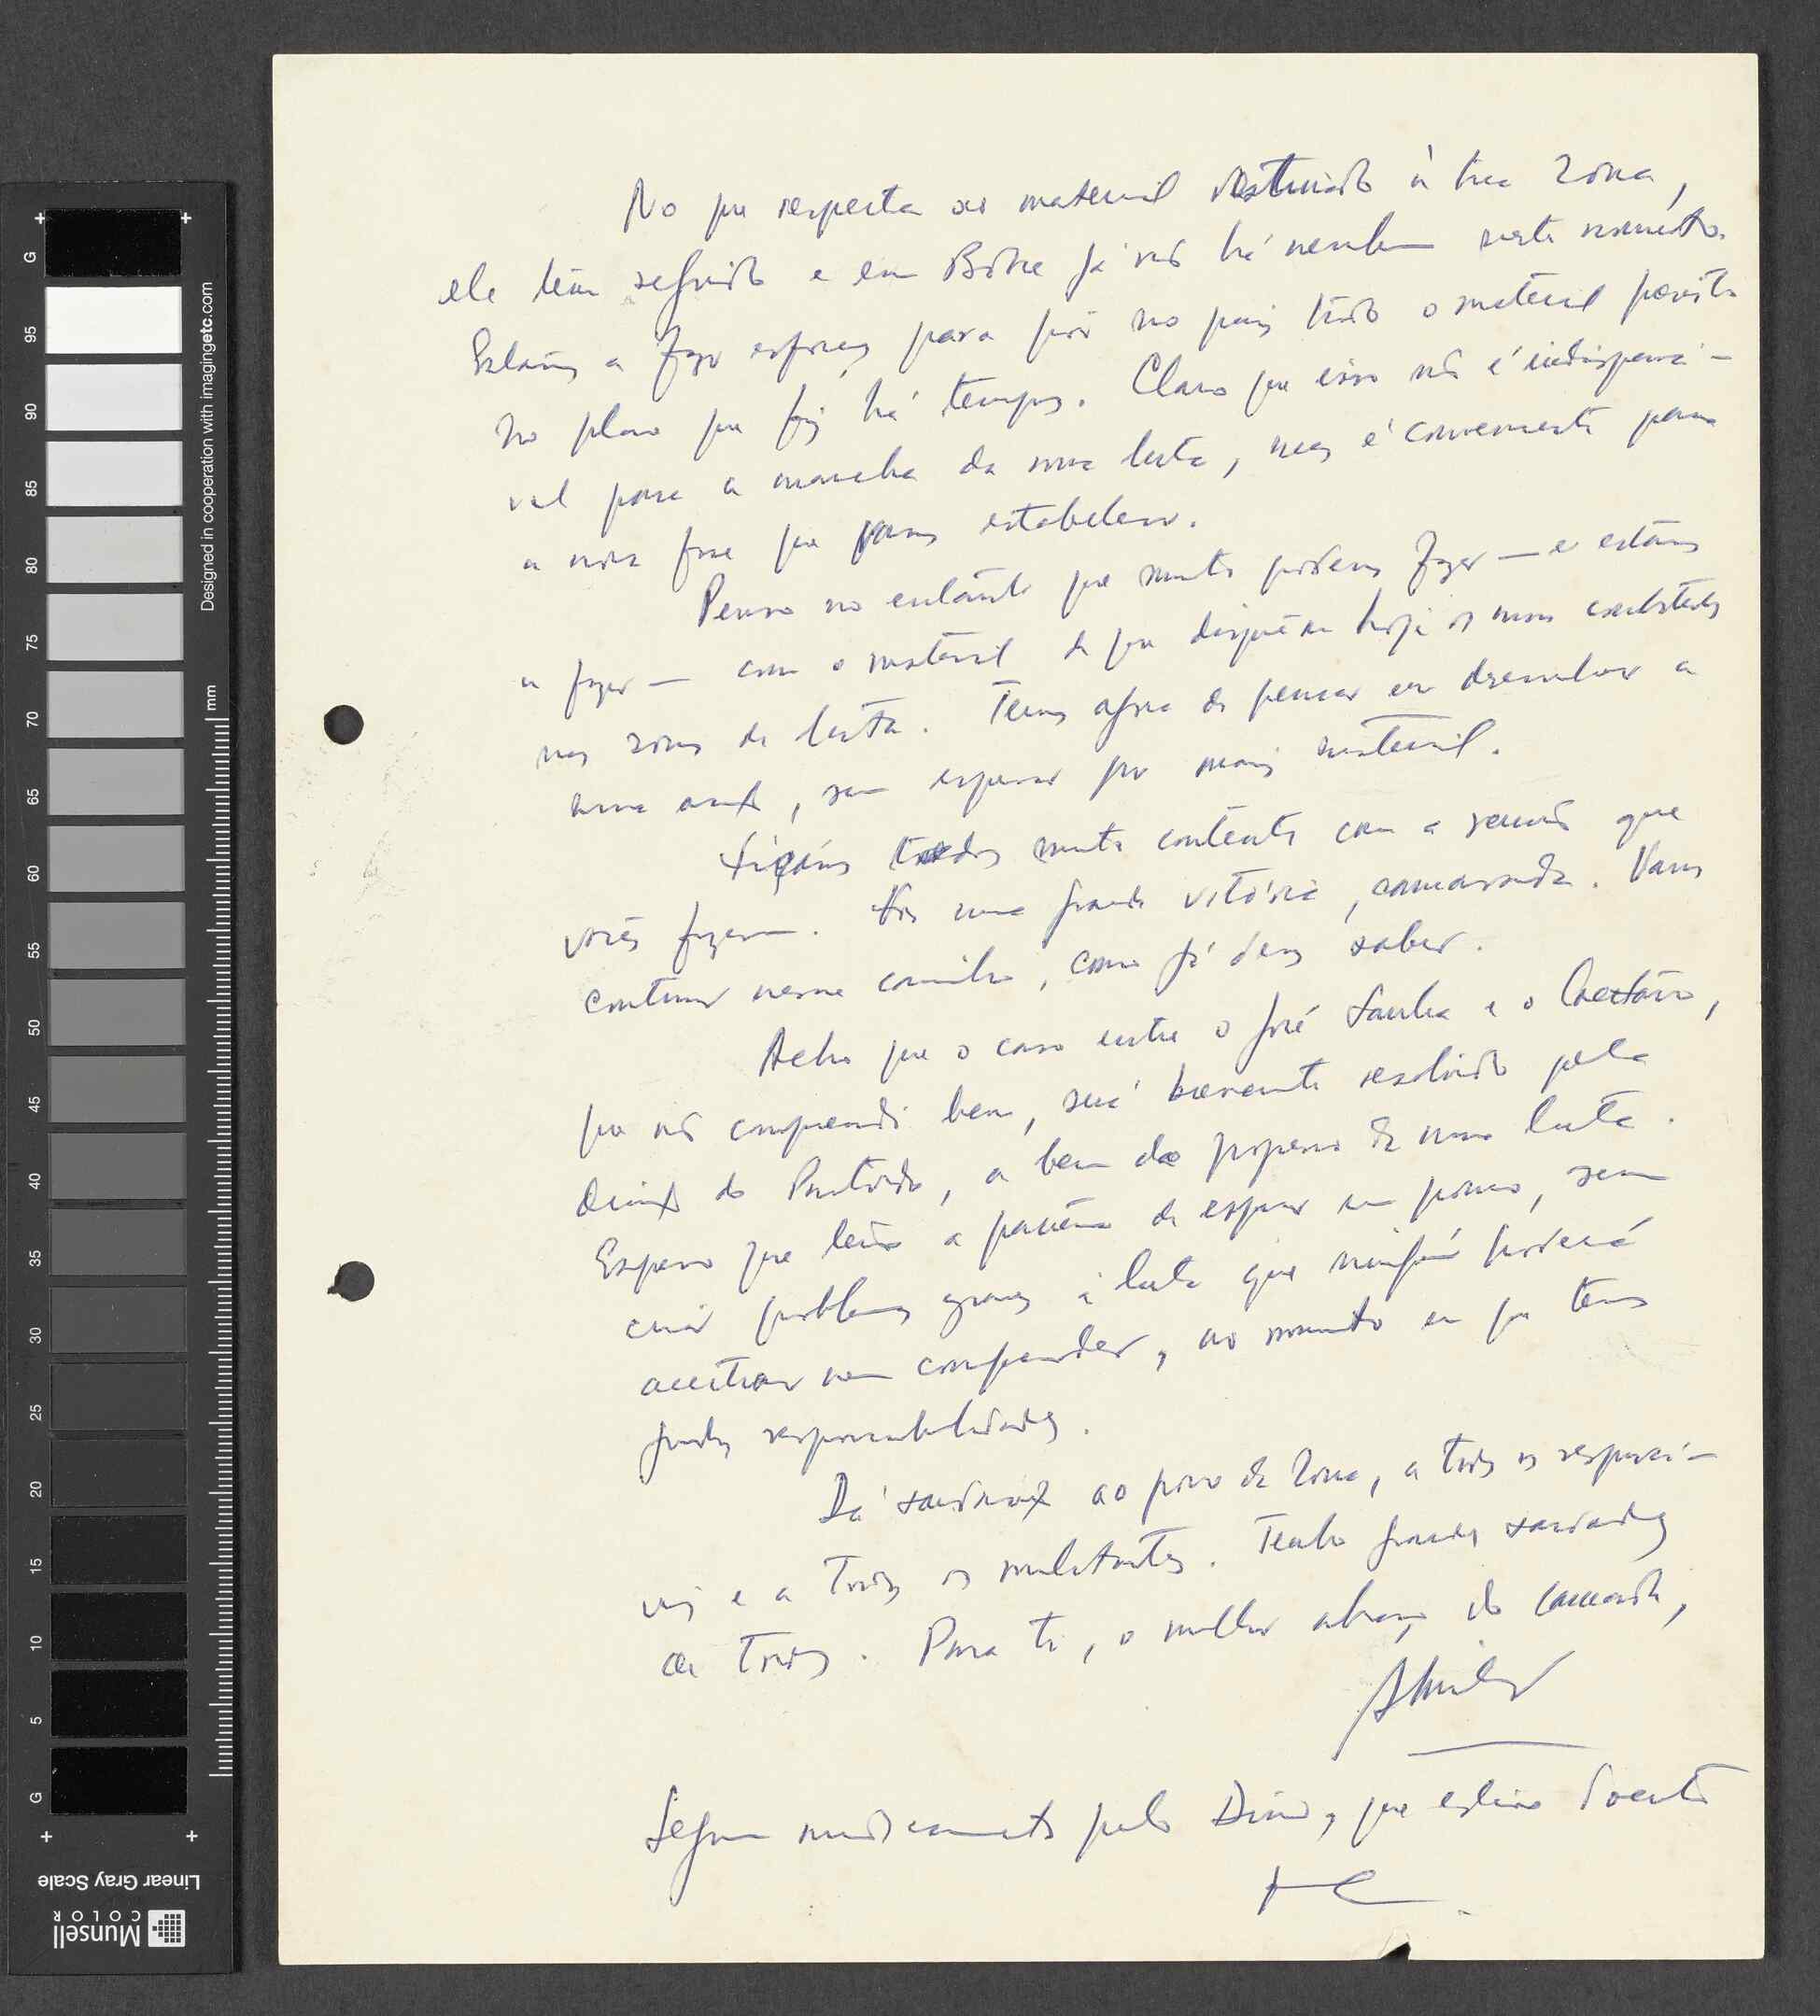 No que respeita ao material destinado à tua zona,
ele tem seguido e em Boké já não há nenhum neste momento.
Estamos a fazer esforços para pôr no país todo o material previsto
no plano que fiz há tempos. Claro que isso não é indispensá-
vel para a marcha da nossa luta, mas é conveniente para
a nova fase que vamos estabelecer.
Penso no entanto que muito podemos fazer — e estamos
a fazer — com o material de que dispõem hoje os nossos combatentes
nas zonas de luta. Temos agora de pensar em desenvolver a
nossa acção, sem esperar por mais material.
Ficámos todos muito contentes com a reunião que
vocês fizeram. Foi uma grande vitória, camarada. Vamos
continuar nesse caminho, como já deves saber.
Acho que o caso entre o José Sanha e o Caetano,
que não compreendi bem, será brevemente resolvido pela
direcção do Partido, a bem do progresso da nossa luta.
Espero que terão a paciência de esperar um pouco, sem
criar problemas graves à luta que ninguém poderá
aceitar nem compreender, no momento em que temos
grandes responsabilidades.
Dá saudações ao povo da zona, a todos os responsá-
veis e a todos os militantes. Tenho grandes saudades
de todos. Para ti, o melhor abraço do camarada,
Amílcar
Seguem medicamentos pelo Dino, que esteve doente
Designed in cooperation with imagingetc.com
mm
G 95 90 85 80 75 70 65 60 55 50 45 40 35 30 25 20 15 10 5 G
Linear Gray Scale
Munsell
COLOR